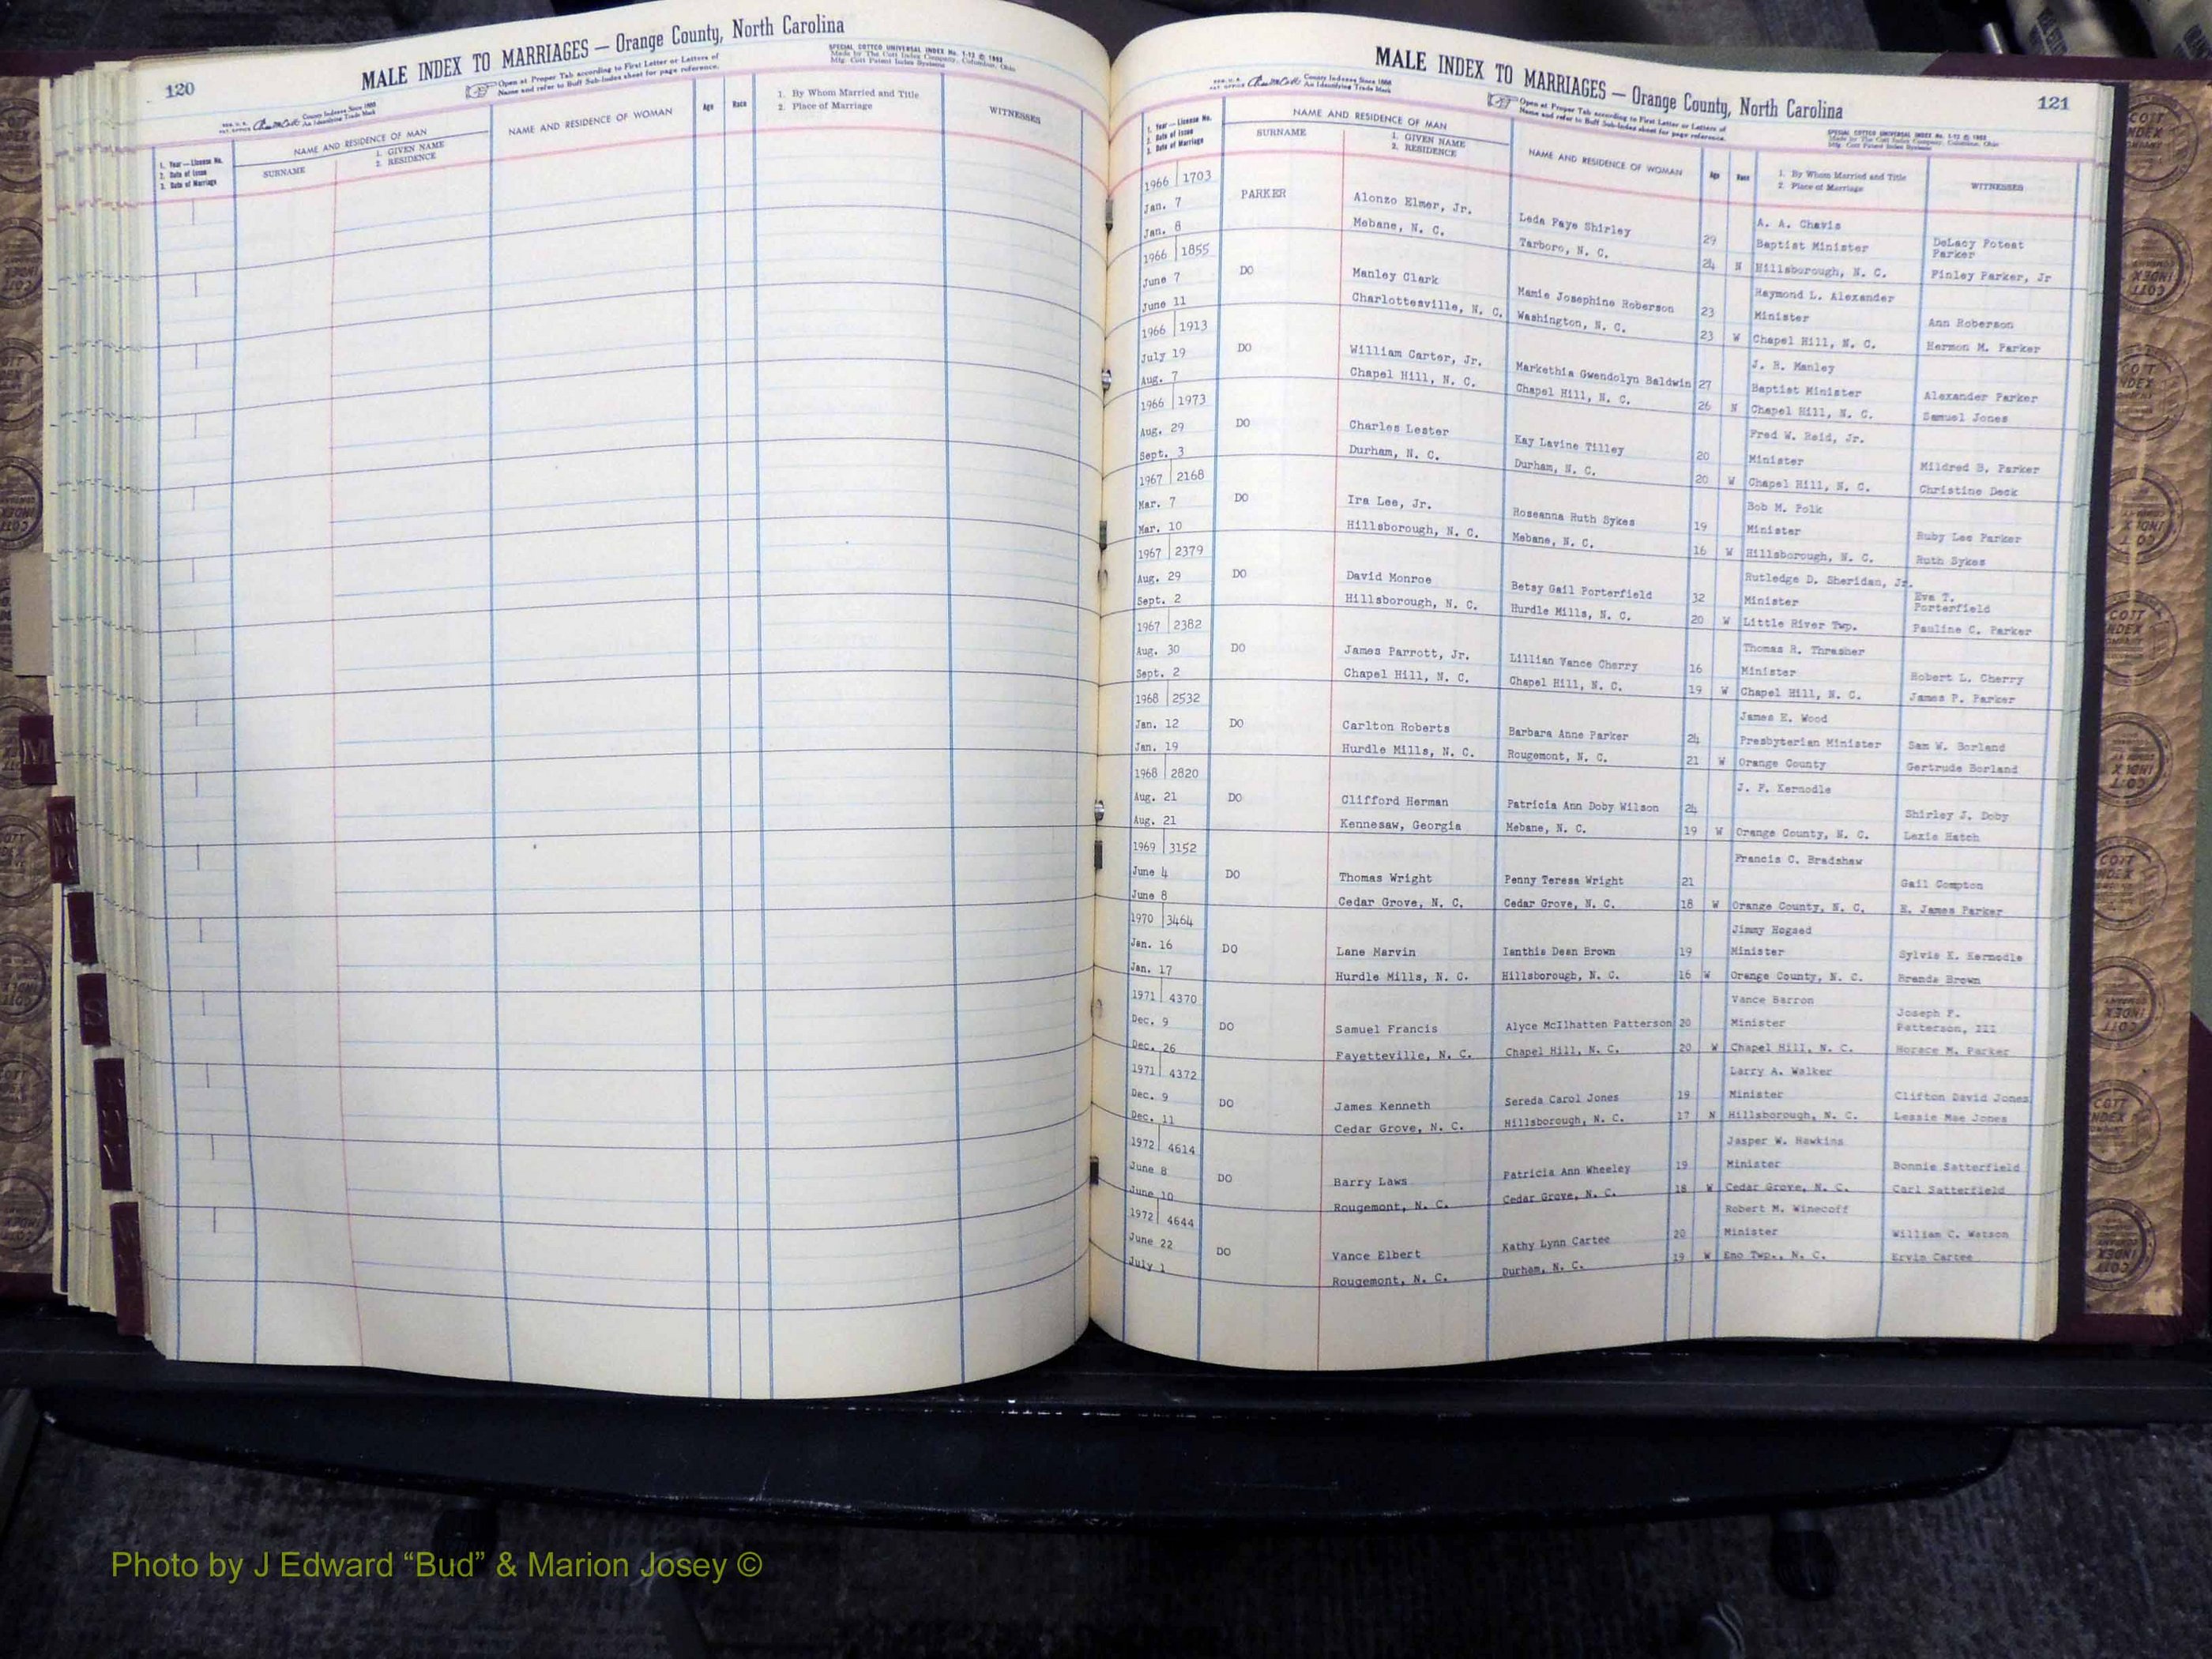 120
MALE INDEX TO MARRIAGES — Orange County, North Carolina
Open at Proper Tab according to First Letter or Letters of
Name and refer to Buff Sub-Index sheet for page reference.
SPECIAL COTTCO UNIVERSAL INDEX No. 1-13 © 1963
Made by The Cott Index Company, Columbus, Ohio
Mfg. Cott Patent Index Systems
County Indexes Since 1888
An Identifying Trade Mark
1. Year — License No.
2. Date of Issue
3. Date of Marriage
NAME AND RESIDENCE OF MAN
SURNAME
1. GIVEN NAME
2. RESIDENCE
NAME AND RESIDENCE OF WOMAN
Age
Race
1. By Whom Married and Title
2. Place of Marriage
WITNESSES
MALE INDEX TO MARRIAGES — Orange County, North Carolina
121
County Indexes Since 1888
An Identifying Trade Mark
Open at Proper Tab according to First Letter or Letters of
Name and refer to Buff Sub-Index sheet for page reference.
SPECIAL COTTCO UNIVERSAL INDEX No. 1-13 © 1963
Made by The Cott Index Company, Columbus, Ohio
Mfg. Cott Patent Index Systems
1. Year — License No.
2. Date of Issue
3. Date of Marriage
NAME AND RESIDENCE OF MAN
SURNAME
1. GIVEN NAME
2. RESIDENCE
NAME AND RESIDENCE OF WOMAN
Age
Race
1. By Whom Married and Title
2. Place of Marriage
WITNESSES
1966 1703 A. A. Chavis
Jan. 7 PARKER Alonzo Elmer, Jr. Leda Faye Shirley 29 Baptist Minister DeLacy Poteat Parker
Jan. 8 Mebane, N. C. Tarboro, N. C. 24 N Hillsborough, N. C. Finley Parker, Jr
1966 1855 Raymond L. Alexander
June 7 DO Manley Clark Mamie Josephine Roberson 23 Minister Ann Roberson
June 11 Charlottesville, N. C. Washington, N. C. 23 W Chapel Hill, N. C. Hermon M. Parker
1966 1913 J. R. Manley
July 19 DO William Carter, Jr. Markethia Gwendolyn Baldwin 27 Baptist Minister Alexander Parker
Aug. 7 Chapel Hill, N. C. Chapel Hill, N. C. 26 N Chapel Hill, N. C. Samuel Jones
1966 1973 Fred W. Reid, Jr.
Aug. 29 DO Charles Lester Kay Lavine Tilley 20 Minister Mildred B. Parker
Sept. 3 Durham, N. C. Durham, N. C. 20 W Chapel Hill, N. C. Christine Deck
1967 2168 Bob M. Polk
Mar. 7 DO Ira Lee, Jr. Roseanna Ruth Sykes 19 Minister Ruby Lee Parker
Mar. 10 Hillsborough, N. C. Mebane, N. C. 16 W Hillsborough, N. C. Ruth Sykes
1967 2379 Rutledge D. Sheridan, Jr.
Aug. 29 DO David Monroe Betsy Gail Porterfield 32 Minister Eva T. Porterfield
Sept. 2 Hillsborough, N. C. Hurdle Mills, N. C. 20 W Little River Twp. Pauline C. Parker
1967 2382 Thomas R. Thrasher
Aug. 30 DO James Parrott, Jr. Lillian Vance Cherry 16 Minister Robert L. Cherry
Sept. 2 Chapel Hill, N. C. Chapel Hill, N. C. 19 W Chapel Hill, N. C. James P. Parker
1968 2532 James E. Wood
Jan. 12 DO Carlton Roberts Barbara Anne Parker 24 Presbyterian Minister Sam W. Borland
Jan. 19 Hurdle Mills, N. C. Rougemont, N. C. 21 W Orange County Gertrude Borland
1968 2820 J. F. Kernodle
Aug. 21 DO Clifford Herman Patricia Ann Doby Wilson 24 Shirley J. Doby
Aug. 21 Kennesaw, Georgia Mebane, N. C. 19 W Orange County, N. C. Lexie Hatch
1969 3152 Francis C. Bradshaw
June 4 DO Thomas Wright Penny Teresa Wright 21 Gail Compton
June 8 Cedar Grove, N. C. Cedar Grove, N. C. 18 W Orange County, N. C. E. James Parker
1970 3464 Jimmy Hogsed
Jan. 16 DO Lane Marvin Ianthis Dean Brown 19 Minister Sylvie K. Kernodle
Jan. 17 Hurdle Mills, N. C. Hillsborough, N. C. 16 W Orange County, N. C. Brenda Brown
1971 4370 Vance Barron
Dec. 9 DO Samuel Francis Alyce McIlhatten Patterson 20 Minister Joseph F. Patterson, III
Dec. 26 Fayetteville, N. C. Chapel Hill, N. C. 20 W Chapel Hill, N. C. Horace M. Parker
1971 4372 Larry A. Walker
Dec. 9 DO James Kenneth Sereda Carol Jones 19 Minister Clifton David Jones
Dec. 11 Cedar Grove, N. C. Hillsborough, N. C. 17 N Hillsborough, N. C. Lessie Mae Jones
1972 4614 Jasper W. Hawkins
June 8 DO Barry Laws Patricia Ann Wheeley 19 Minister Bonnie Satterfield
June 10 Rougemont, N. C. Cedar Grove, N. C. 18 W Cedar Grove, N. C. Carl Satterfield
1972 4644 Robert M. Winecoff
June 22 DO Vance Elbert Kathy Lynn Cartee 20 Minister William C. Watson
July 1 Rougemont, N. C. Durham, N. C. 19 W Eno Twp., N. C. Ervin Cartee
Photo by J Edward “Bud” & Marion Josey ©